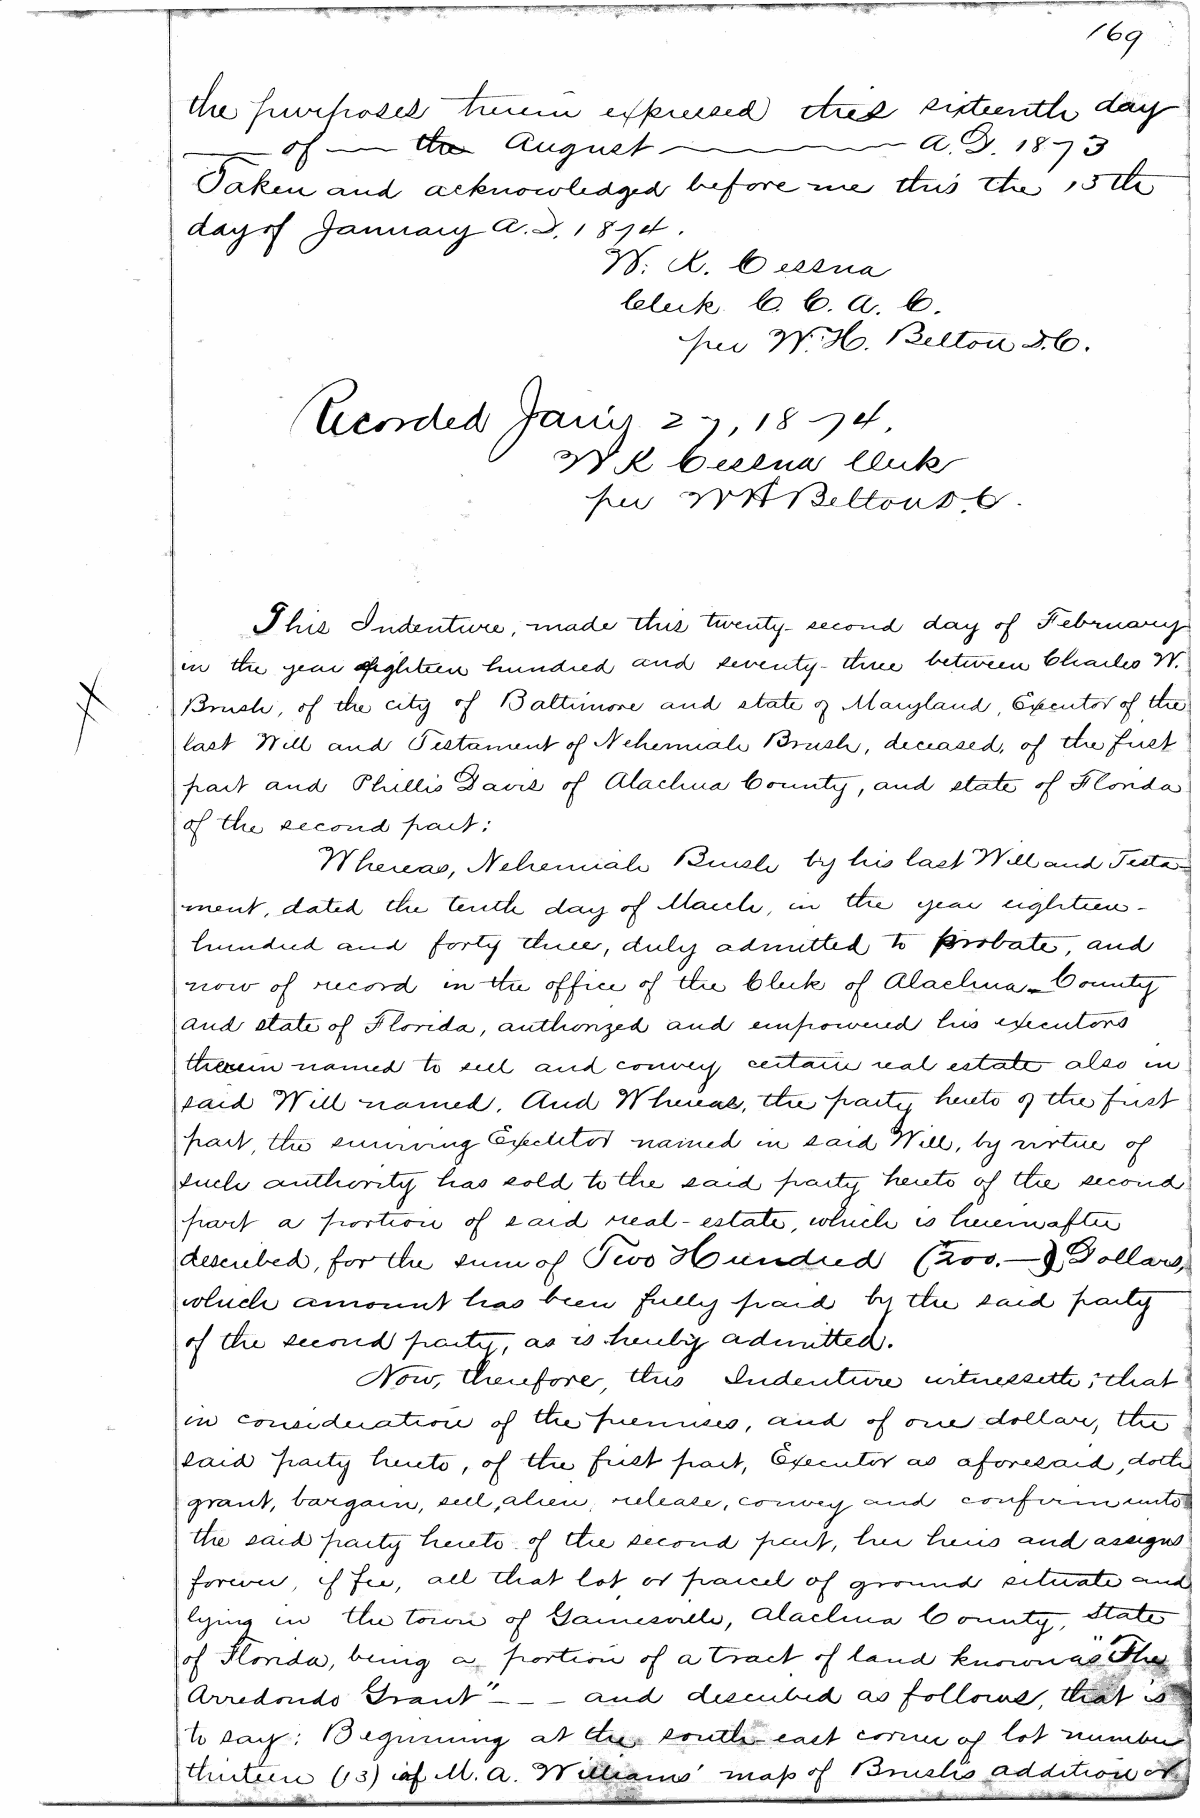 169
the purposes therein expressed this sixteenth day
of the August A.D. 1873
Taken and acknowledged before me this the 15th
day of January A.D. 1874.
W. K. Cessna
Clerk C. C. A. C.
per W. H. Belton D.C.
Recorded Jan'y 27, 1874.
W K Cessna Clerk
per W H Belton D.C.
This Indenture, made this twenty-second day of February
in the year eighteen hundred and seventy-three between Charles W.
Brush, of the city of Baltimore and state of Maryland, Executor of the
last Will and Testament of Nehemiah Brush, deceased, of the first
part and Phillis Davis of Alachua County, and state of Florida
of the second part;
Whereas, Nehemiah Brush by his last Will and Testa-
ment, dated the tenth day of March, in the year eighteen-
hundred and forty three, duly admitted to probate, and
now of record in the office of the Clerk of Alachua County
and state of Florida, authorized and empowered his executors
therein named to sell and convey certain real estate also in
said Will named. And Whereas, the party hereto of the first
part, the surviving Executor named in said Will, by virtue of
such authority has sold to the said party hereto of the second
part a portion of said real-estate, which is hereinafter
described, for the sum of Two Hundred (200.—) Dollars,
which amount has been fully paid by the said party
of the second party, as is hereby admitted.
Now, therefore, this Indenture witnesseth; that
in consideration of the premises, and of one dollar, the
said party hereto, of the first part, Executor as aforesaid, doth
grant, bargain, sell, alien, release, convey and confirm unto
the said party hereto of the second part, her heirs and assigns
forever, if fee, all that lot or parcel of ground situate and
lying in the town of Gainesville, Alachua County, State
of Florida, being a portion of a tract of land known as "The
Arredondo Grant" - - - and described as follows, that is
to say: Beginning at the south-east corner of lot number
thirteen (13) of M. A. Williams' map of Brush's addition or